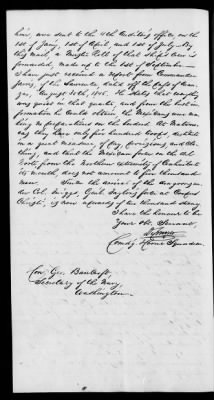 tion, were sent to the 4th Auditing Office, on the
1st of Jany, 1st of April, and 1st of July. By
this mail, a Muster Roll of that Ship's crew is
forwarded, made up to the 1st of September.
I have just received a report from Commander
of the Saratoga, dated off the
August 30th, 1845. He states that everything
was quiet in that quarter, and from the best in-
formation he could obtain, the Mexicans were mak-
ing no preparations on the border. At Matamo-
ras they have only five hundred troops, destitute
in a great measure, of pay, provisions, and clo-
thing, and that the Mexican force on the del
Norte from the Northern extremity of Coahuila to
its mouth, does not amount to five thousand
men. Since the arrival of the dragoons un-
der Col. Twiggs, Genl. Taylor's force at Corpus
Christi, is now upwards of two thousand strong.
I have the honour to be
Your Obt. Servant,
D. Conner
Comdg. Home Squadron.
Hon. Geo. Bancroft,
Secretary of the Navy,
Washington.